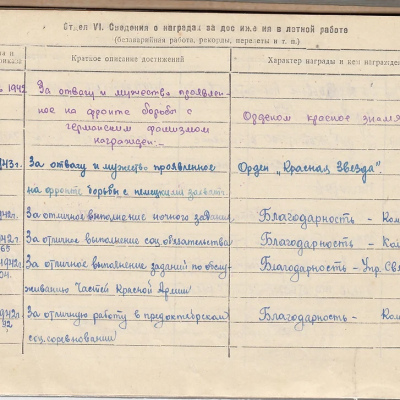 Отдел VI. Сведения о наградах за достижения в летной работе
(безаварийная работа, рекорды, перелеты и т. п.)
Краткое описание достижений
Характер награды и кем награжден
1942 За отвагу и мужество проявлен-
ное на фронте борьбы с Орденом красное знамя
германским фашизмом
награжден:-
943г. За отвагу и мужество проявленное Орден „Красная Звезда".
на фронте борьбы с немецкими
942г. За отличное выполнение ночного задания Благодарность - Ком
942г За отличное выполнение соц. обязательства Благодарность - Ком
65
1942г За отличное выполнение заданий по обслу- Благодарность - Упр. Свя
04. живанию Частей Красной Армии
942г За отличную работу в предоктябрьском Благодарность - Ком
92 соц. соревновании